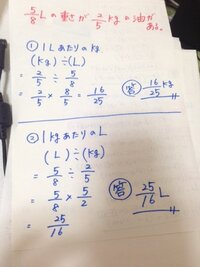 5/8Lの重さが 2/5 kgの油が
ある。
① 1Lあたりのkg
(kg)÷(L)
= 2/5 ÷ 5/8
= 2/5 × 8/5 = 16/25
答 16/25 kg
② 1kgあたりのL
(L)÷(kg)
= 5/8 ÷ 2/5
= 5/8 × 5/2
= 25/16
答 25/16 L